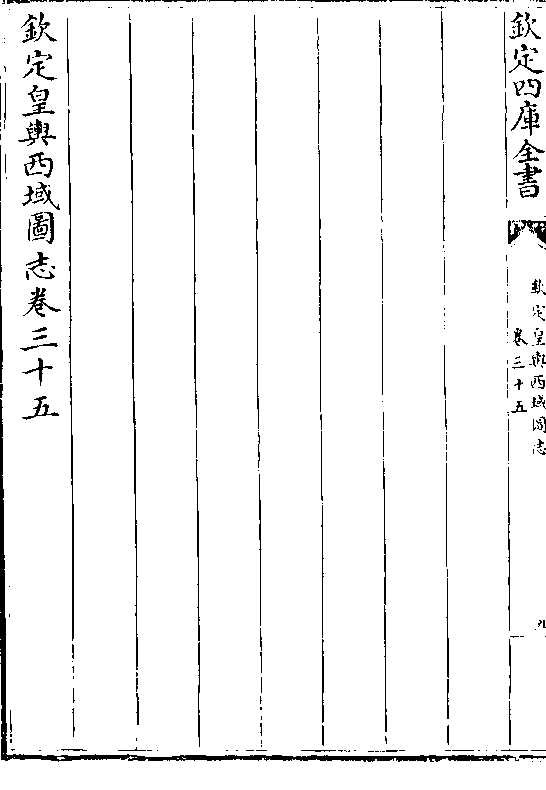 欽定四庫全書
欽定皇輿西域圖志
卷三十五
九
欽定皇輿西域圖志卷三十五